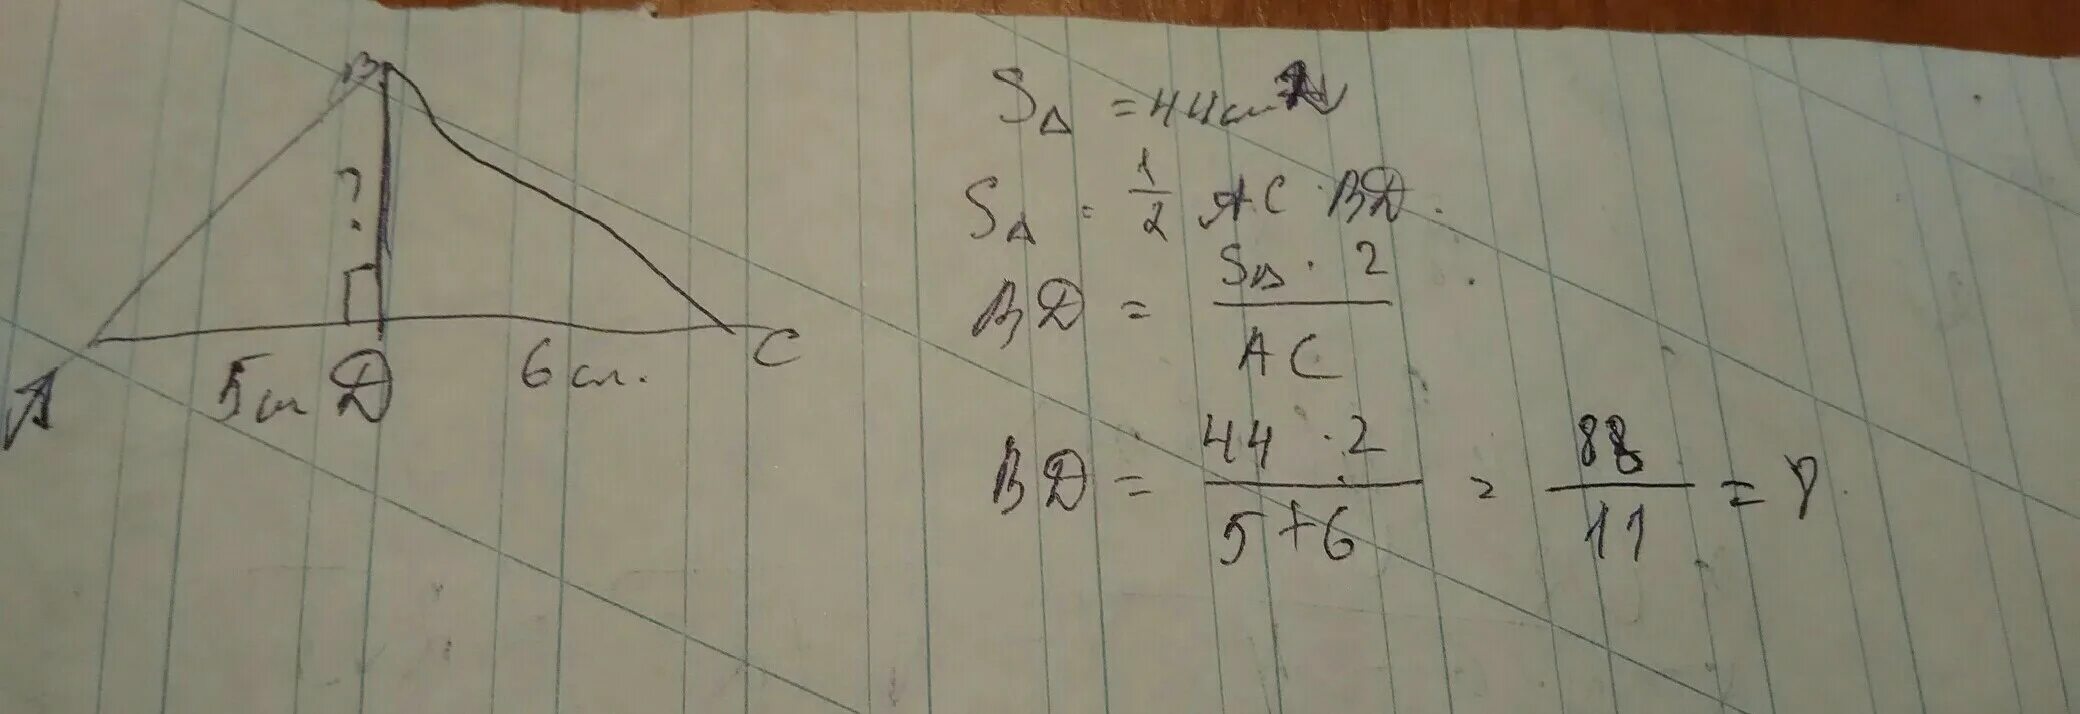 B
?
A 5см D 6см. C
S△ = 44см²
S△ = 1/2 AC · BD.
BD = S△ · 2 / AC
BD = 44 · 2 / 5+6 = 88 / 11 = 8